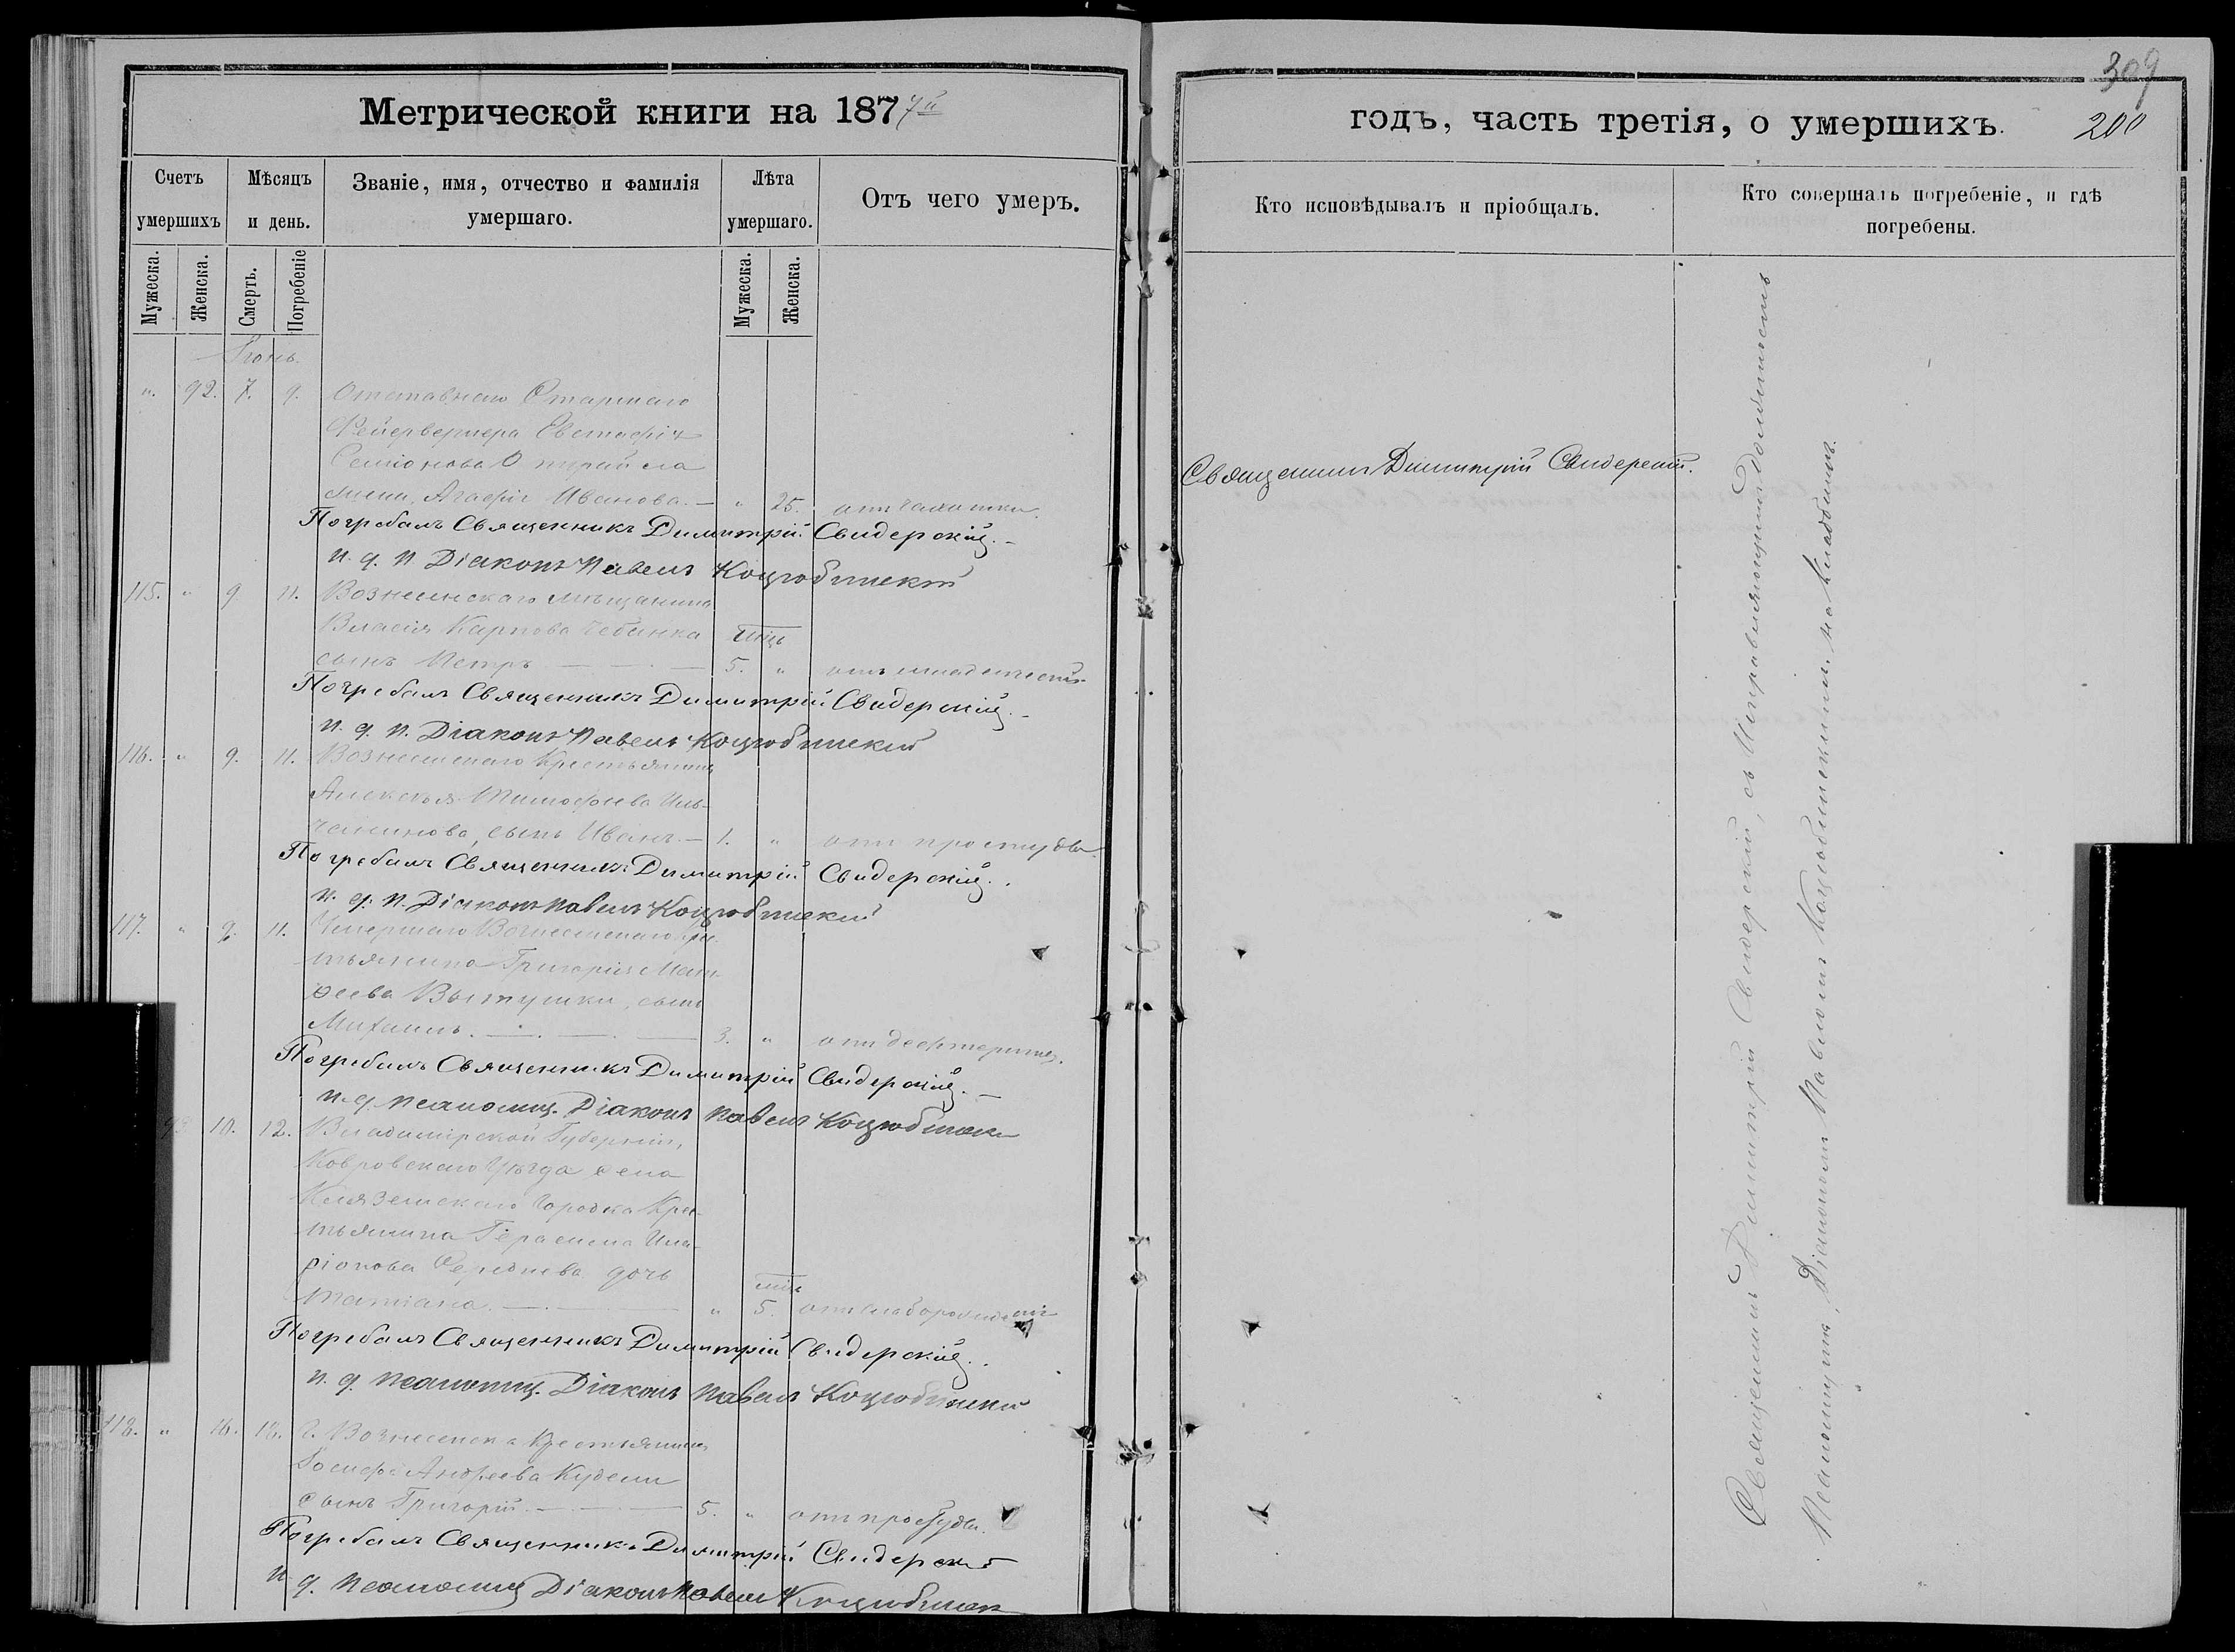 Метрической книги на 1877й
Счетъ умершихъ
Мѣсяцъ и день.
Званіе, имя, отчество и фамилія умершаго.
Лѣта умершаго.
Отъ чего умеръ.
Мужеска.
Женска.
Смерть.
Погребеніе
Мужеска.
Женска.
Іюнь.
". 92. 7. 9. Отставнаго Старшаго
Фейерверкера Евстафія
Семіонова
жена, Агафія Иванова. — " 25. отъ чахотки.
Погребалъ Священникъ Димитрій Свидерскій. —
и. д. п. Діаконъ Павелъ Коцюбинскій
115. " 9 11. Вознесенскаго мѣщанина
Власія Карпова Чебанка мѣц
сынъ Петръ — — — 5. " отъ
Погребалъ Священникъ Димитрій Свидерскій. —
и. д. п. Діаконъ Павелъ Коцюбинскій
116. " 9. 11. Вознесенскаго Крестьянина
Алексѣя Тимофеева Иль-
, сынъ Иванъ — 1. " отъ простуды.
Погребалъ Священникъ Димитрій Свидерскій.
и. д. п. Діаконъ Павелъ Коцюбинскій
117. " 9. 11. Умершаго Вознесенскаго Кре-
стьянина Григорія Мат-
ѳеева сынъ
Михаилъ. — — — 3. " отъ дефтерита.
Погребалъ Священникъ Димитрій Свидерскій. —
и. д. псаломщ. Діаконъ Павелъ Коцюбинскій
93. 10. 12. Владимірской Губерніи,
Ковровскаго Уѣзда села
Клязменскаго Городка Кре-
стьянина Герасима Ила-
ріонова Середнева дочь мѣц
Татіана. — — " 5. отъ слаборожденія
Погребалъ Священникъ Димитрій Свидерскій.
и. д. псаломщ. Діаконъ Павелъ Коцюбинскій
118. " 16. 18. г. Вознесенска Крестьянина
Іосифа Андреева Кудели
сынъ Григорій. — — 5. " отъ простуды.
Погребалъ Священникъ Димитрій Свидерскій
и. д. псаломщ Діаконъ Павелъ Коцюбинскій
309
годъ, часть третія, о умершихъ.
200
Кто исповѣдывалъ и пріобщалъ.
Кто совершалъ погребеніе, и гдѣ погребены.
Священникъ Димитрій Свидерскій.
Священникъ Димитрій Свидерскій, съ Исправляющимъ Должность
Псаломщика, Діакономъ Павломъ Коцюбинскимъ. на кладбищѣ.